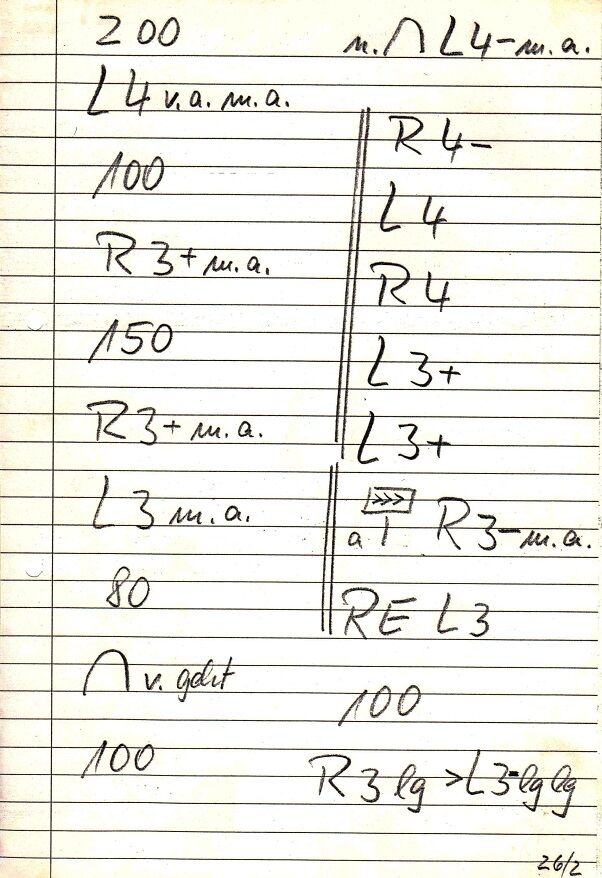 200
L4 v.a. m.a.
100
R3+ m.a.
150
R3+ m.a.
L3 m.a.
80
∩ v. geht
100
n. ∩ L4- m.a.
R4-
L4
R4
L3+
L3+
a >>> R3- m.a.
RE L3
100
R3 lg > L3- lg lg
26/2